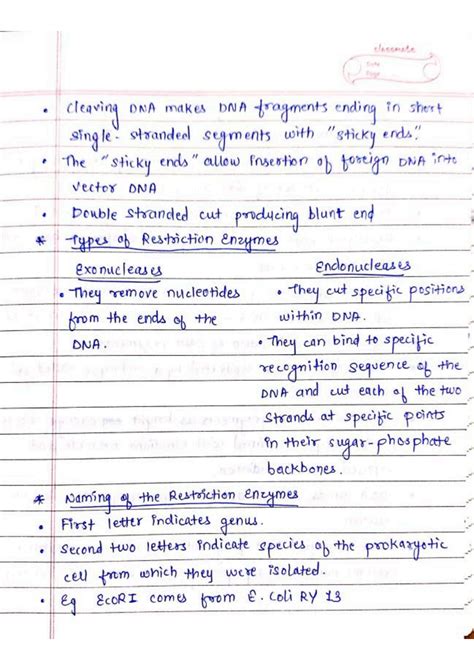 classmate
Date
Page
• Cleaving DNA makes DNA fragments ending in short
single-stranded segments with "sticky ends".
• The "sticky ends" allow insertion of foreign DNA into
vector DNA
• Double stranded cut producing blunt end
* Types of Restriction Enzymes
Exonucleases
• They remove nucleotides
from the ends of the
DNA.
Endonucleases
• They cut specific positions
within DNA.
• They can bind to specific
recognition sequence of the
DNA and cut each of the two
strands at specific points
in their sugar-phosphate
backbones.
* Naming of the Restriction Enzymes
• First letter indicates genus.
• Second two letters indicate species of the prokaryotic
cell from which they were isolated.
• Eg EcoRI comes from E. Coli RY 13